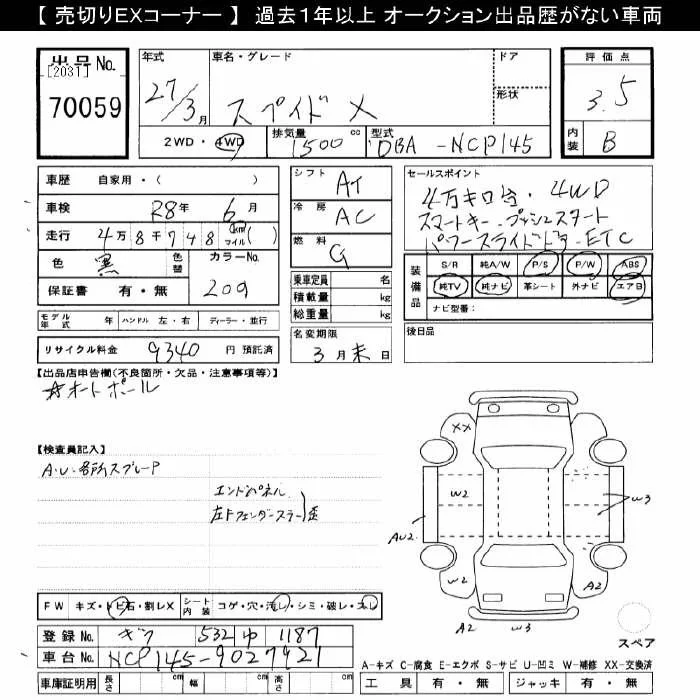 【 売切りEXコーナー 】 過去１年以上 オークション出品歴がない車両
出品No.
[2031]
70059
年式
27/3月
車名・グレード
スペイド X
ドア
形状
2WD・4WD
排気量
1500 cc
型式
DBA -NCP145
評価点
3.5
内装
B
車歴 自家用・( )
車検 28年 6月
走行 4万8千748 km マイル( )
色 黒 色替 カラーNo.
保証書 有・無 209
シフト AT
冷房 AC
燃料 G
乗車定員 名
積載量 kg
総重量 kg
セールスポイント
4万キロ台・4WD
スマートキー プッシュスタート
パワースライドドア ETC
装備品
S/R 純A/W P/S P/W ABS
純TV 純ナビ 革シート 外ナビ エアB
ナビ型番：
モデル年式 年 ハンドル 左・右 ディーラー・並行
リサイクル料金 9340 円 預託済
名変期限
3月末日
後日品
【出品店申告欄(不良箇所・欠品・注意事項等)】
☆オートポール
【検査員記入】
A・U・各所スプレーP
エンドパネル
左Fフェンダーステー
XX
W2
W3
AU2
W2
A2
A2 W3
スペア
FW キズ・トビ石・割レX シート内装 コゲ・穴・汚レ・シミ・破レ・スレ
登録No. ギフ 532 ゆ 1187
車台No. NCP145-9027921
車庫証明用 長さ cm 幅 cm 高さ cm
A-キズ C-腐食 E-エクボ S-サビ U-凹ミ W-補修 XX-交換済
工具 有・無 ジャッキ 有・無